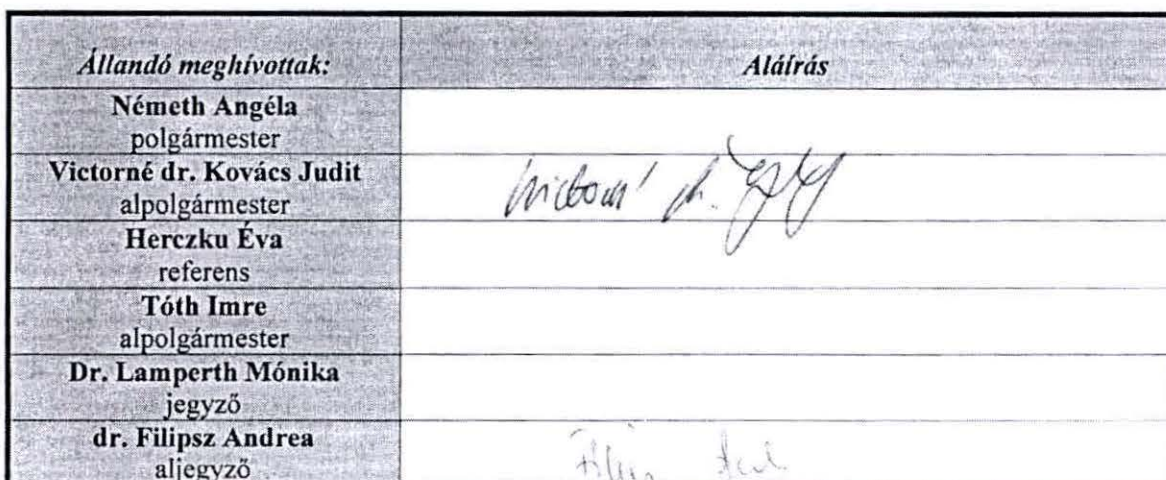 Állandó meghívottak: Aláírás
Németh Angéla
polgármester
Victorné dr. Kovács Judit
alpolgármester
Victorné dr.
Herczku Éva
referens
Tóth Imre
alpolgármester
Dr. Lamperth Mónika
jegyző
dr. Filipsz Andrea
aljegyző